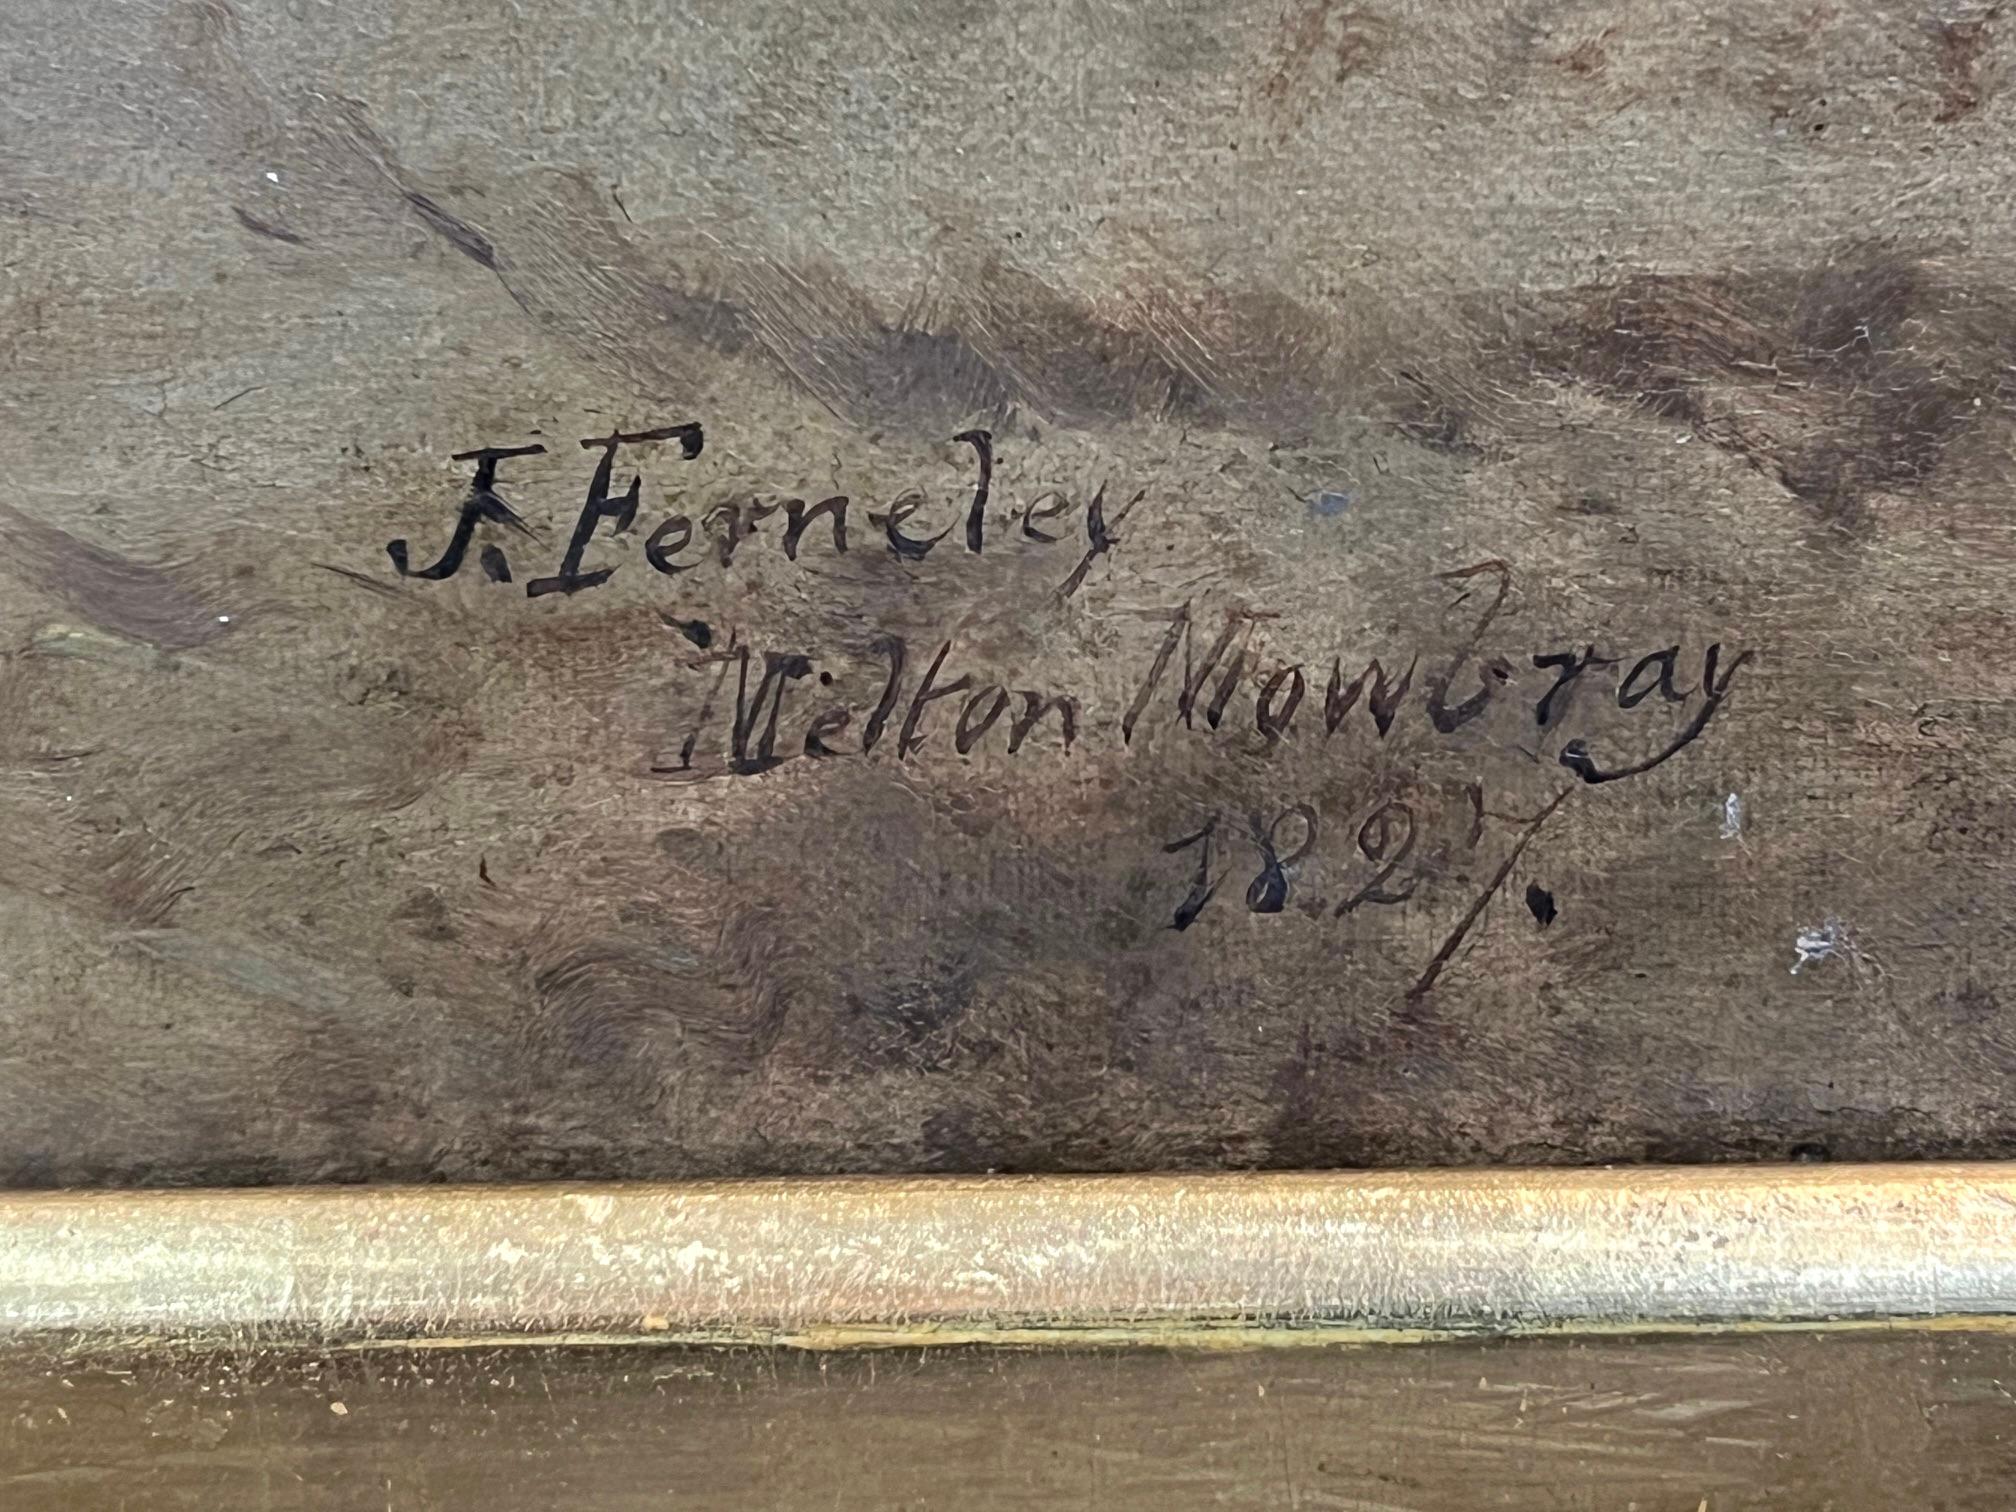 J. Ferneley
Melton Mowbray
1827.